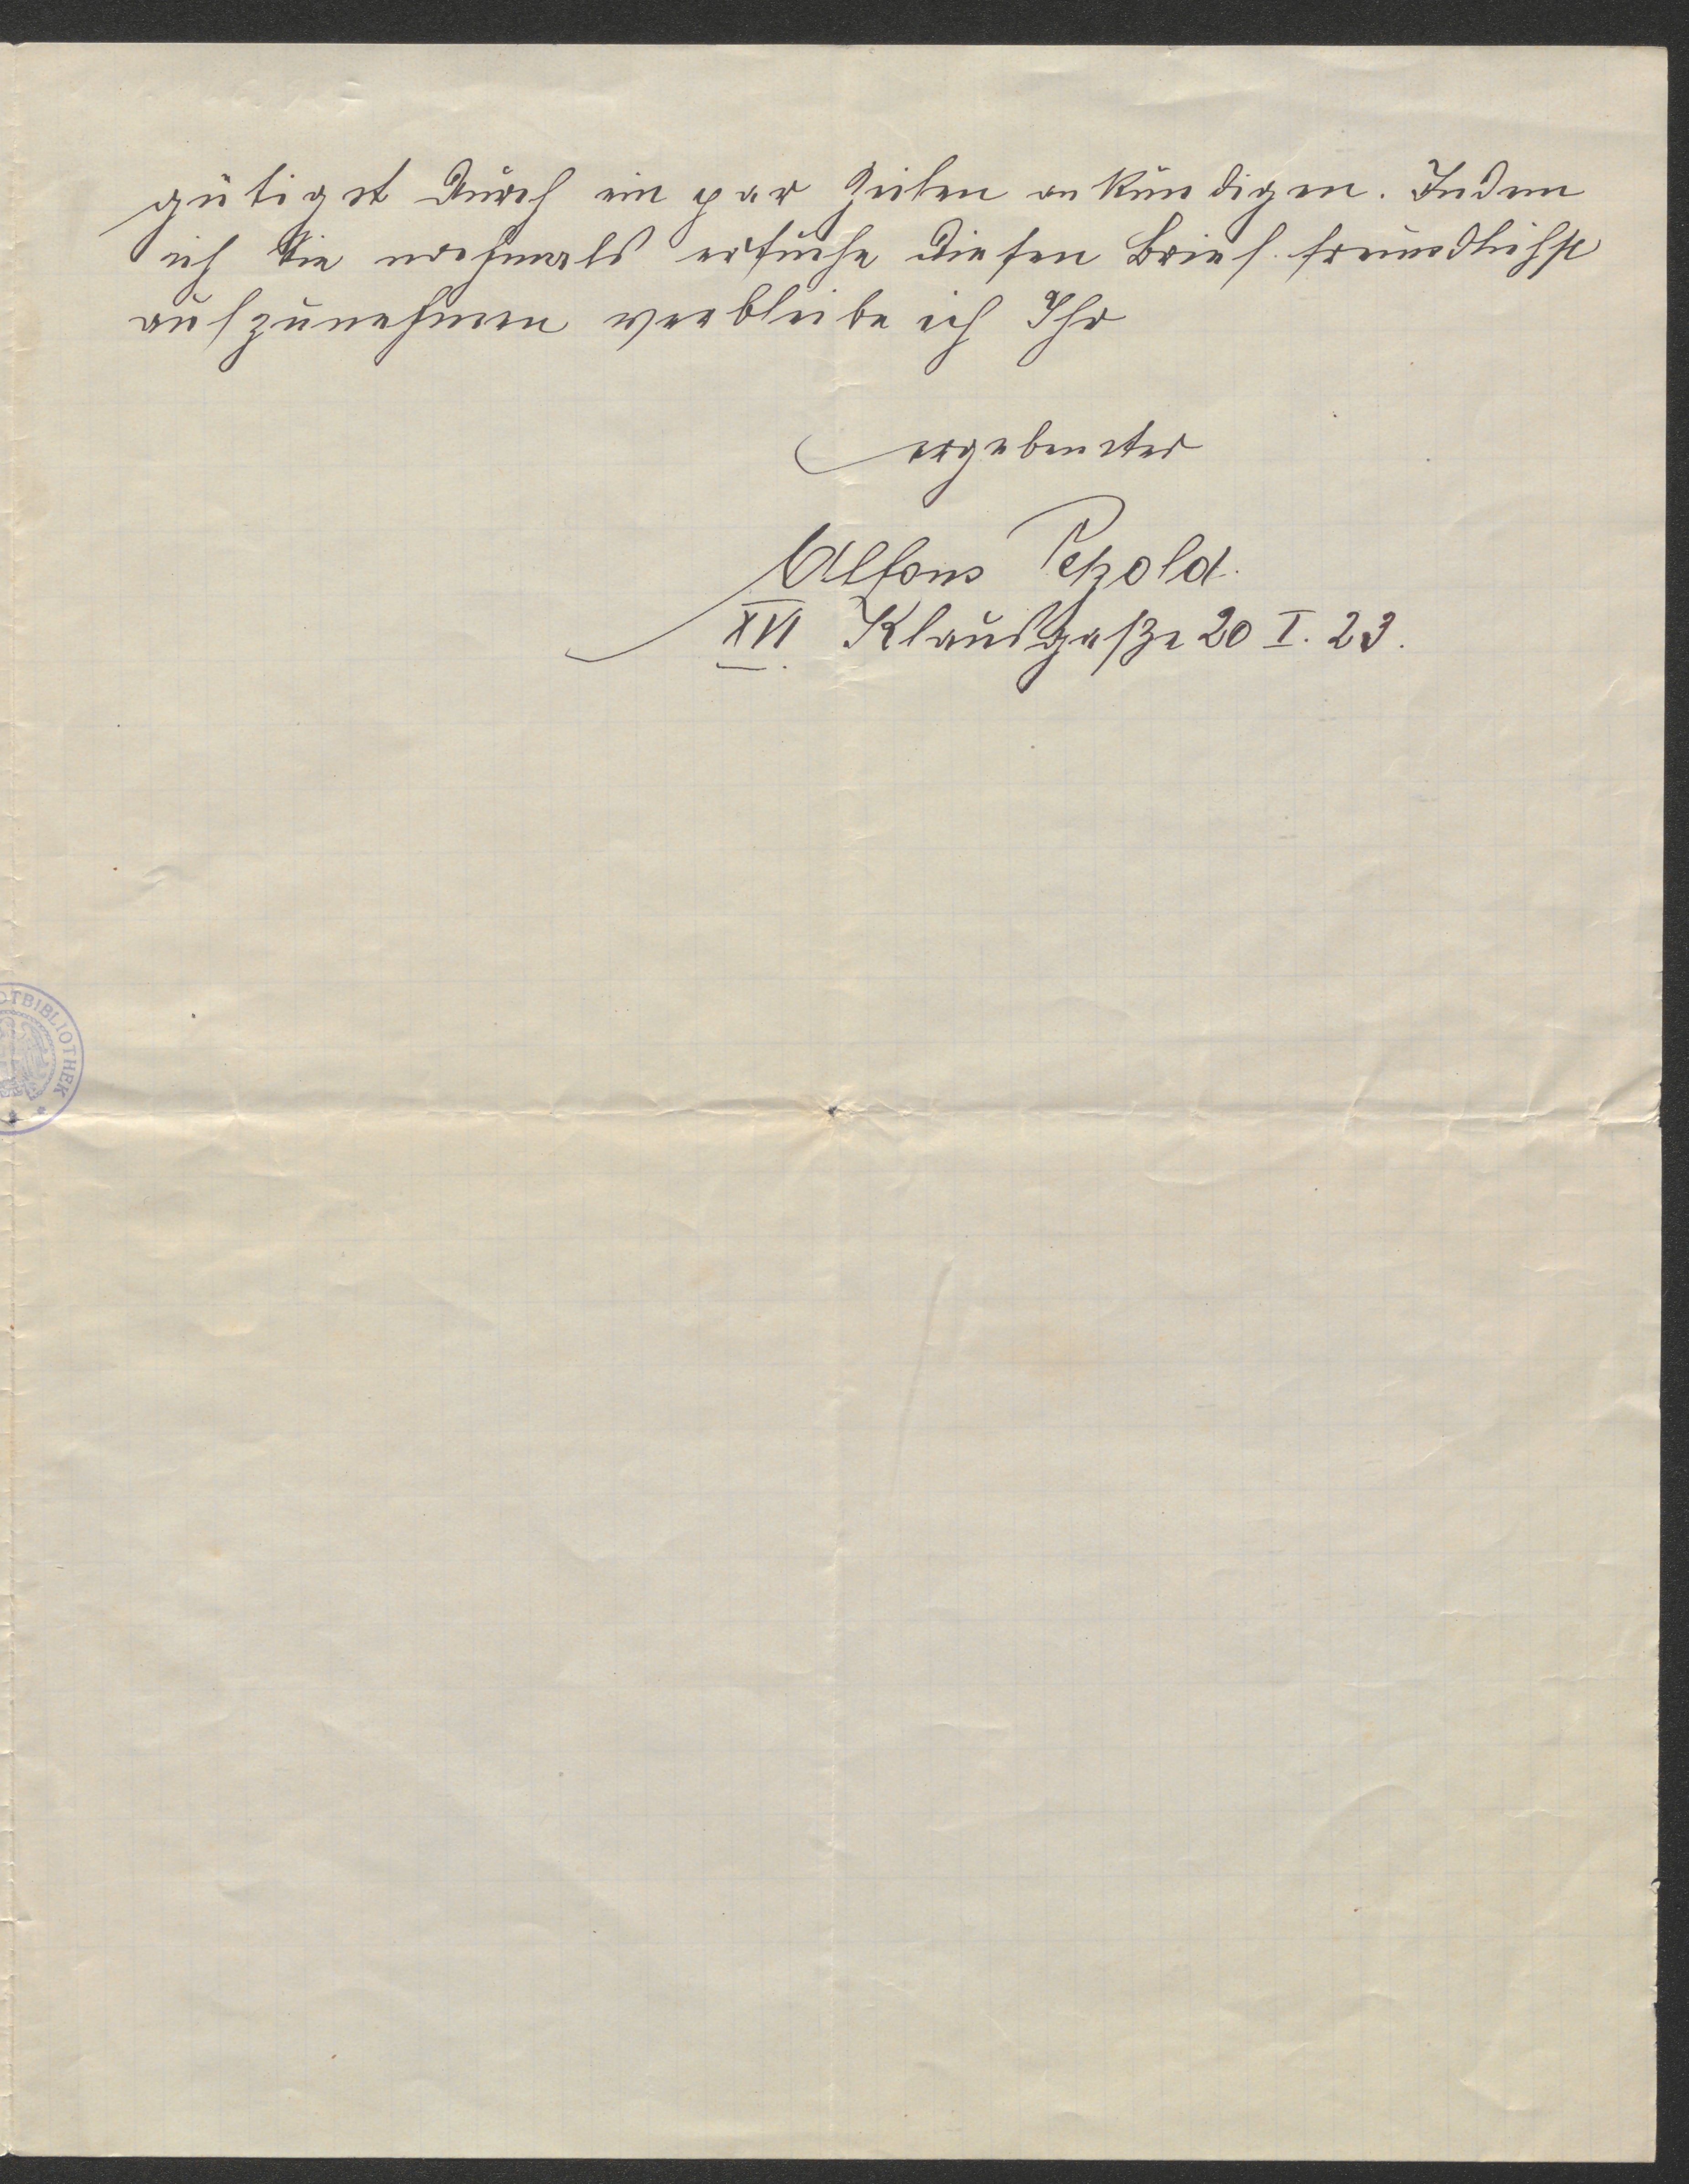 gütigst durch ein par Zeilen ankündigen. Indem
ich Sie nochmals ersuche diesen Brief freundlichst
aufzunehmen verbleibe ich Ihr
ergebenster
Alfons Petzold.
XVI. Klausgaße 20 I. 23.
DTBIBLIOTHEK